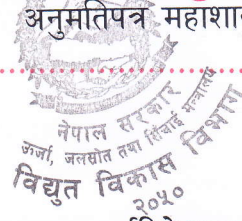 अनुमतिपत्र महाशा
नेपाल सरकार
ऊर्जा, जलस्रोत तथा सिंचाई मन्त्रालय
विद्युत विकास विभाग
२०५०